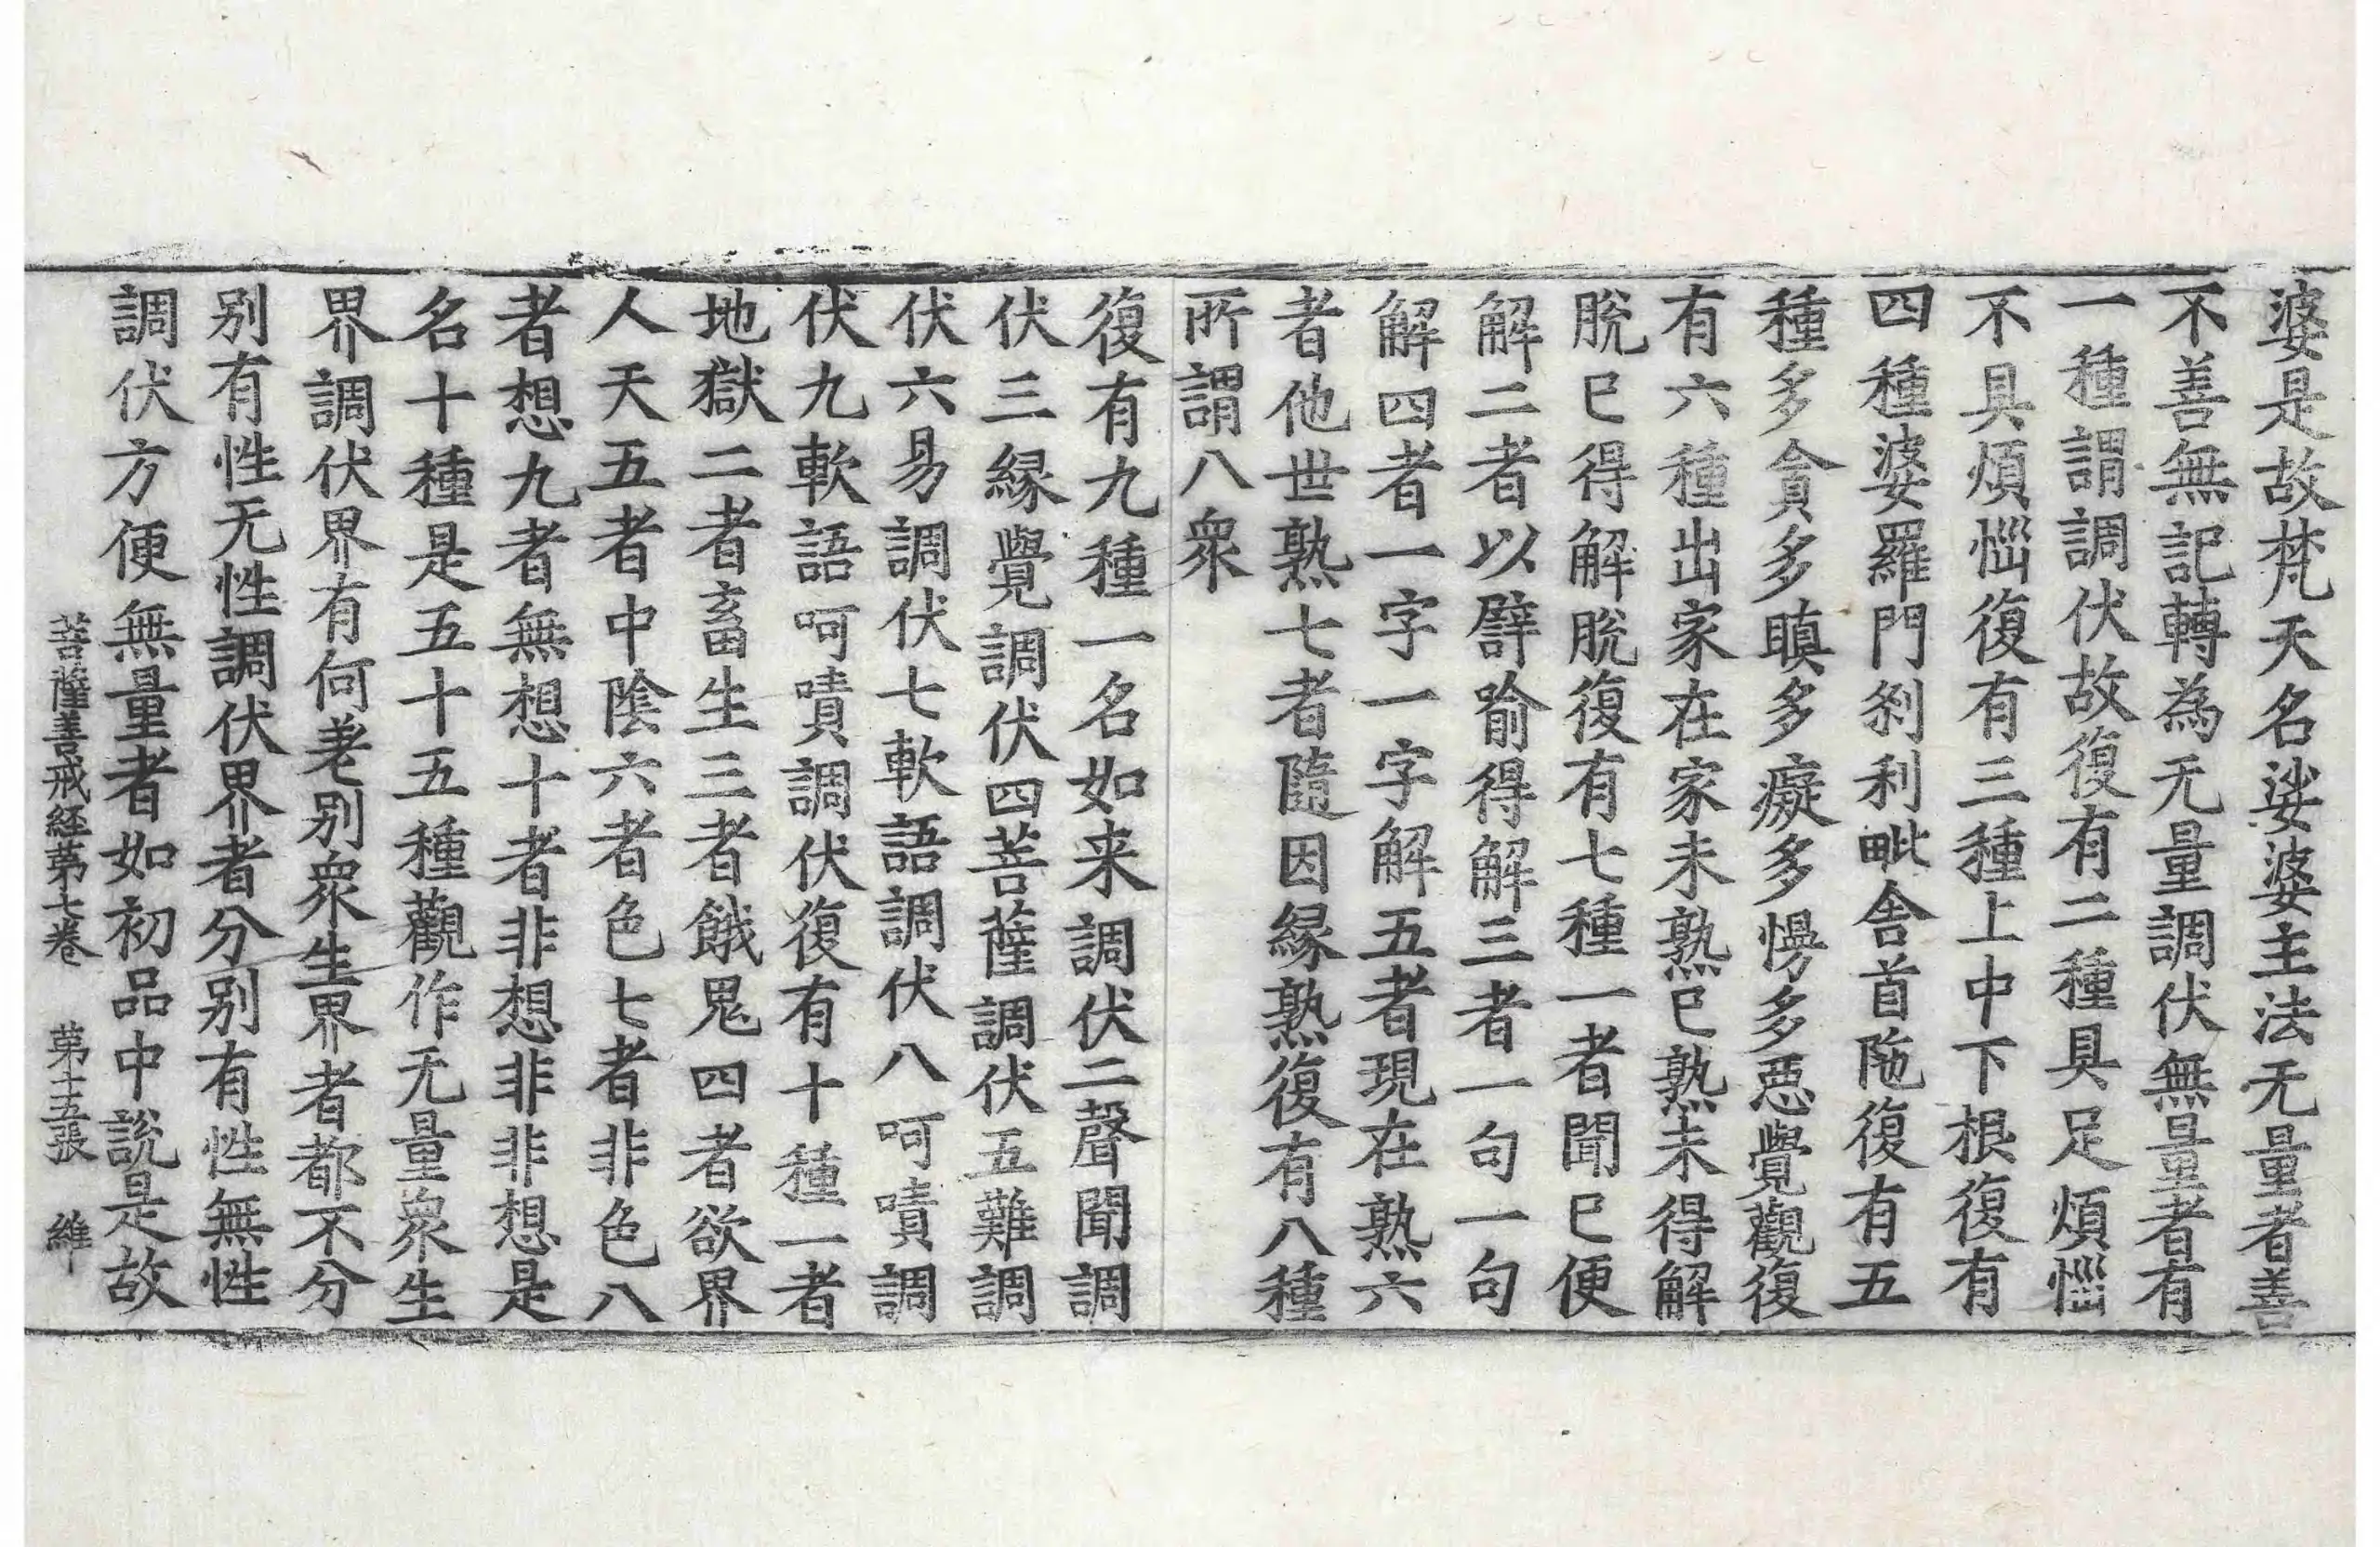 婆是故梵天名娑婆主法无量者善
不善無記轉為无量調伏無量者有
一種謂調伏故復有二種具足煩惱
不具煩惱復有三種上中下根復有
四種婆羅門剎利毗舍首陁復有五
種多貪多瞋多癡多慢多惡覺觀復
有六種出家在家未熟已熟未得解
脫已得解脫復有七種一者聞已便
解二者以譬喻得解三者一句一句
解四者一字一字解五者現在熟六
者他世熟七者隨因緣熟復有八種
所謂八衆
復有九種一名如来調伏二聲聞調
伏三緣覺調伏四菩薩調伏五難調
伏六易調伏七軟語調伏八呵嘖調
伏九軟語呵嘖調伏復有十種一者
地獄二者畜生三者餓鬼四者欲界
人天五者中陰六者色七者非色八
者想九者無想十者非想非非想是
名十種是五十五種觀作无量衆生
界調伏界有何差别衆生界者都不分
别有性无性調伏界者分别有性無性
調伏方便無量者如初品中說是故
菩薩善戒経第七卷 第十五張 維